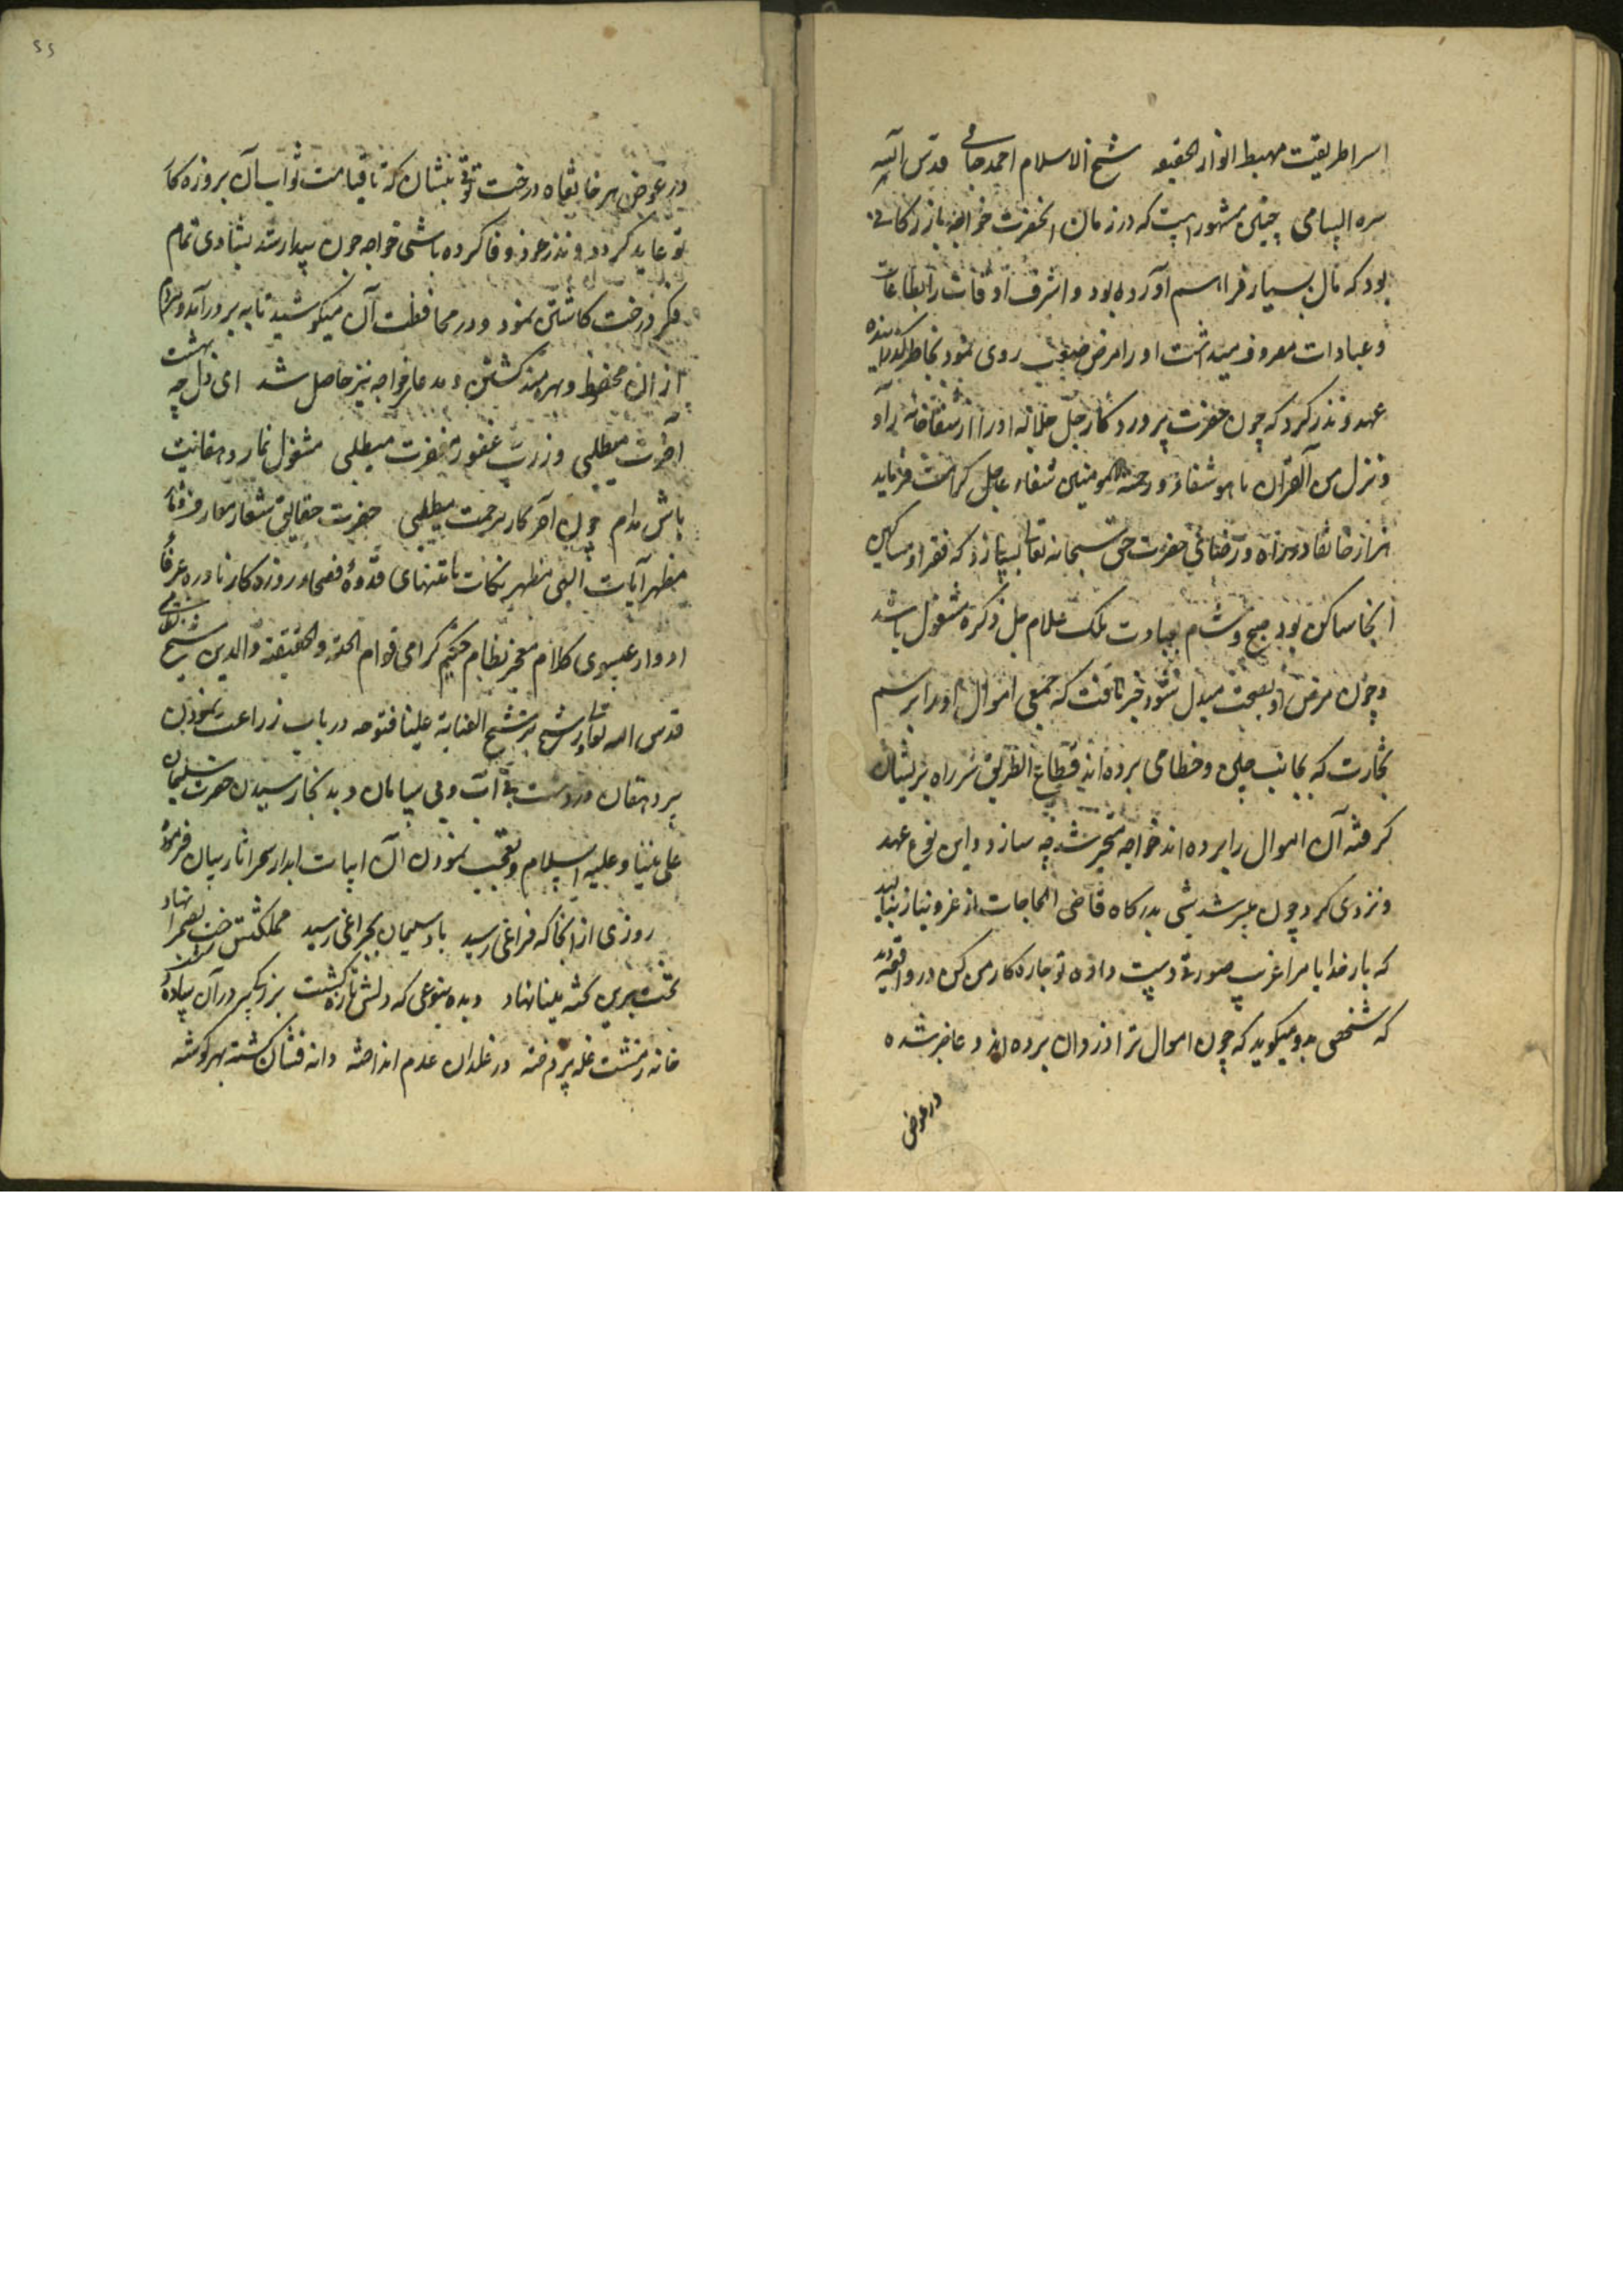 اسرا طریقت مهبط انوار الحقیقه شیخ الاسلام احمد جامی قدس الله
سره السامی چنین مشهور است که در زمان آنحضرت خواجه بازرکانی
بود که مال بسیار فراهم آورده بود و اشرف اوقات را بطاعات
و عبادات مصروف میداشت او را مرض صعب روی نمود بخاطر گذرانیده
عهد و نذر کرد که چون حضرت پروردکار جل جلاله او را از شفاخانه
و ننزل من القرآن ما هو شفاء و رحمة للمومنین شفاء عاجل کرامت فرماید
هزار خانقاه در راه رضای حضرت حق سبحانه تعالی بسازد که فقرا و مساکین
آنجا ساکن بوده صبح و شام بعبادت ملک علام جل ذکره مشغول باشند
و چون مرض او بصحت مبدل شود خبر یافت که جمیع اموال او را برسم
تجارت که بجانب چین و خطا می برده اند قطاع الطریق سر راه بر ایشان
کرفته آن اموال را برده اند خواجه متحیر شد چه سازد و این نوع عهد
و نذری کرد چون شب شد شبی بدرکاه قاضی الحاجات از عجز و نیاز بنالید
که بار خدایا مرا غریب صورتی دست داده تو چاره کار من کن در واقعه دید
که شخصی بدو میکوید که چون اموال ترا دزدان برده اند و عاجز شده
در عوض
در عوض هر خانقاه درخت توتی بنشان که تا قیامت ثواب آن بروزکار
تو عاید کردد و نذر خود وفا کرده باشی خواجه چون بیدار شد بشادی تمام
فکر درخت کاشتن نمود و در محافظت آن میکوشید تا به بر درآمد و مردم
از آن محظوظ و بهره مند کشتن و مدعا خواجه نیز حاصل شد ای دل چه بهشت
آخرت میطلبی وز رب غفور مغفرت میطلبی مشغول نماز و دهقانیت
باش مدام چون آخر کار مرحمت میطلبی حضرت حقایق شعار معارف دثار
مظهر آیات الهی مظهر نکات نامتنهای قدوهٔ فصحاء روزکار نادره عرفاء
ادوار عیسوی کلام معجز نظام حکیم کرامی قوام الحق و الحقیقة و الدین شیخ نظامی
قدس الله تعالی برشح العنایة علینا فتوحه در باب زراعت نمودن
پیر دهقان در دشت بی آب و بی سامان و بدانجا رسیدن حضرت سلیمان
علی نبینا و علیه السلام و تعجب نمودن آن ابیات ابدار سحر آثار بیان فرموده
روزی از آنجا که فراغی رسید باد سلیمان بچراغی رسید مملکتش رخت بصحرا نهاد
تخت برین تخته مینا نهاد دیده بنوعی که دلش تازه کشت برزکری پیر در آن ساده دشت
خانه ز مشت غله پرداخته در غلدان عدم انداخته دانه فشان کشته بهر کوشه